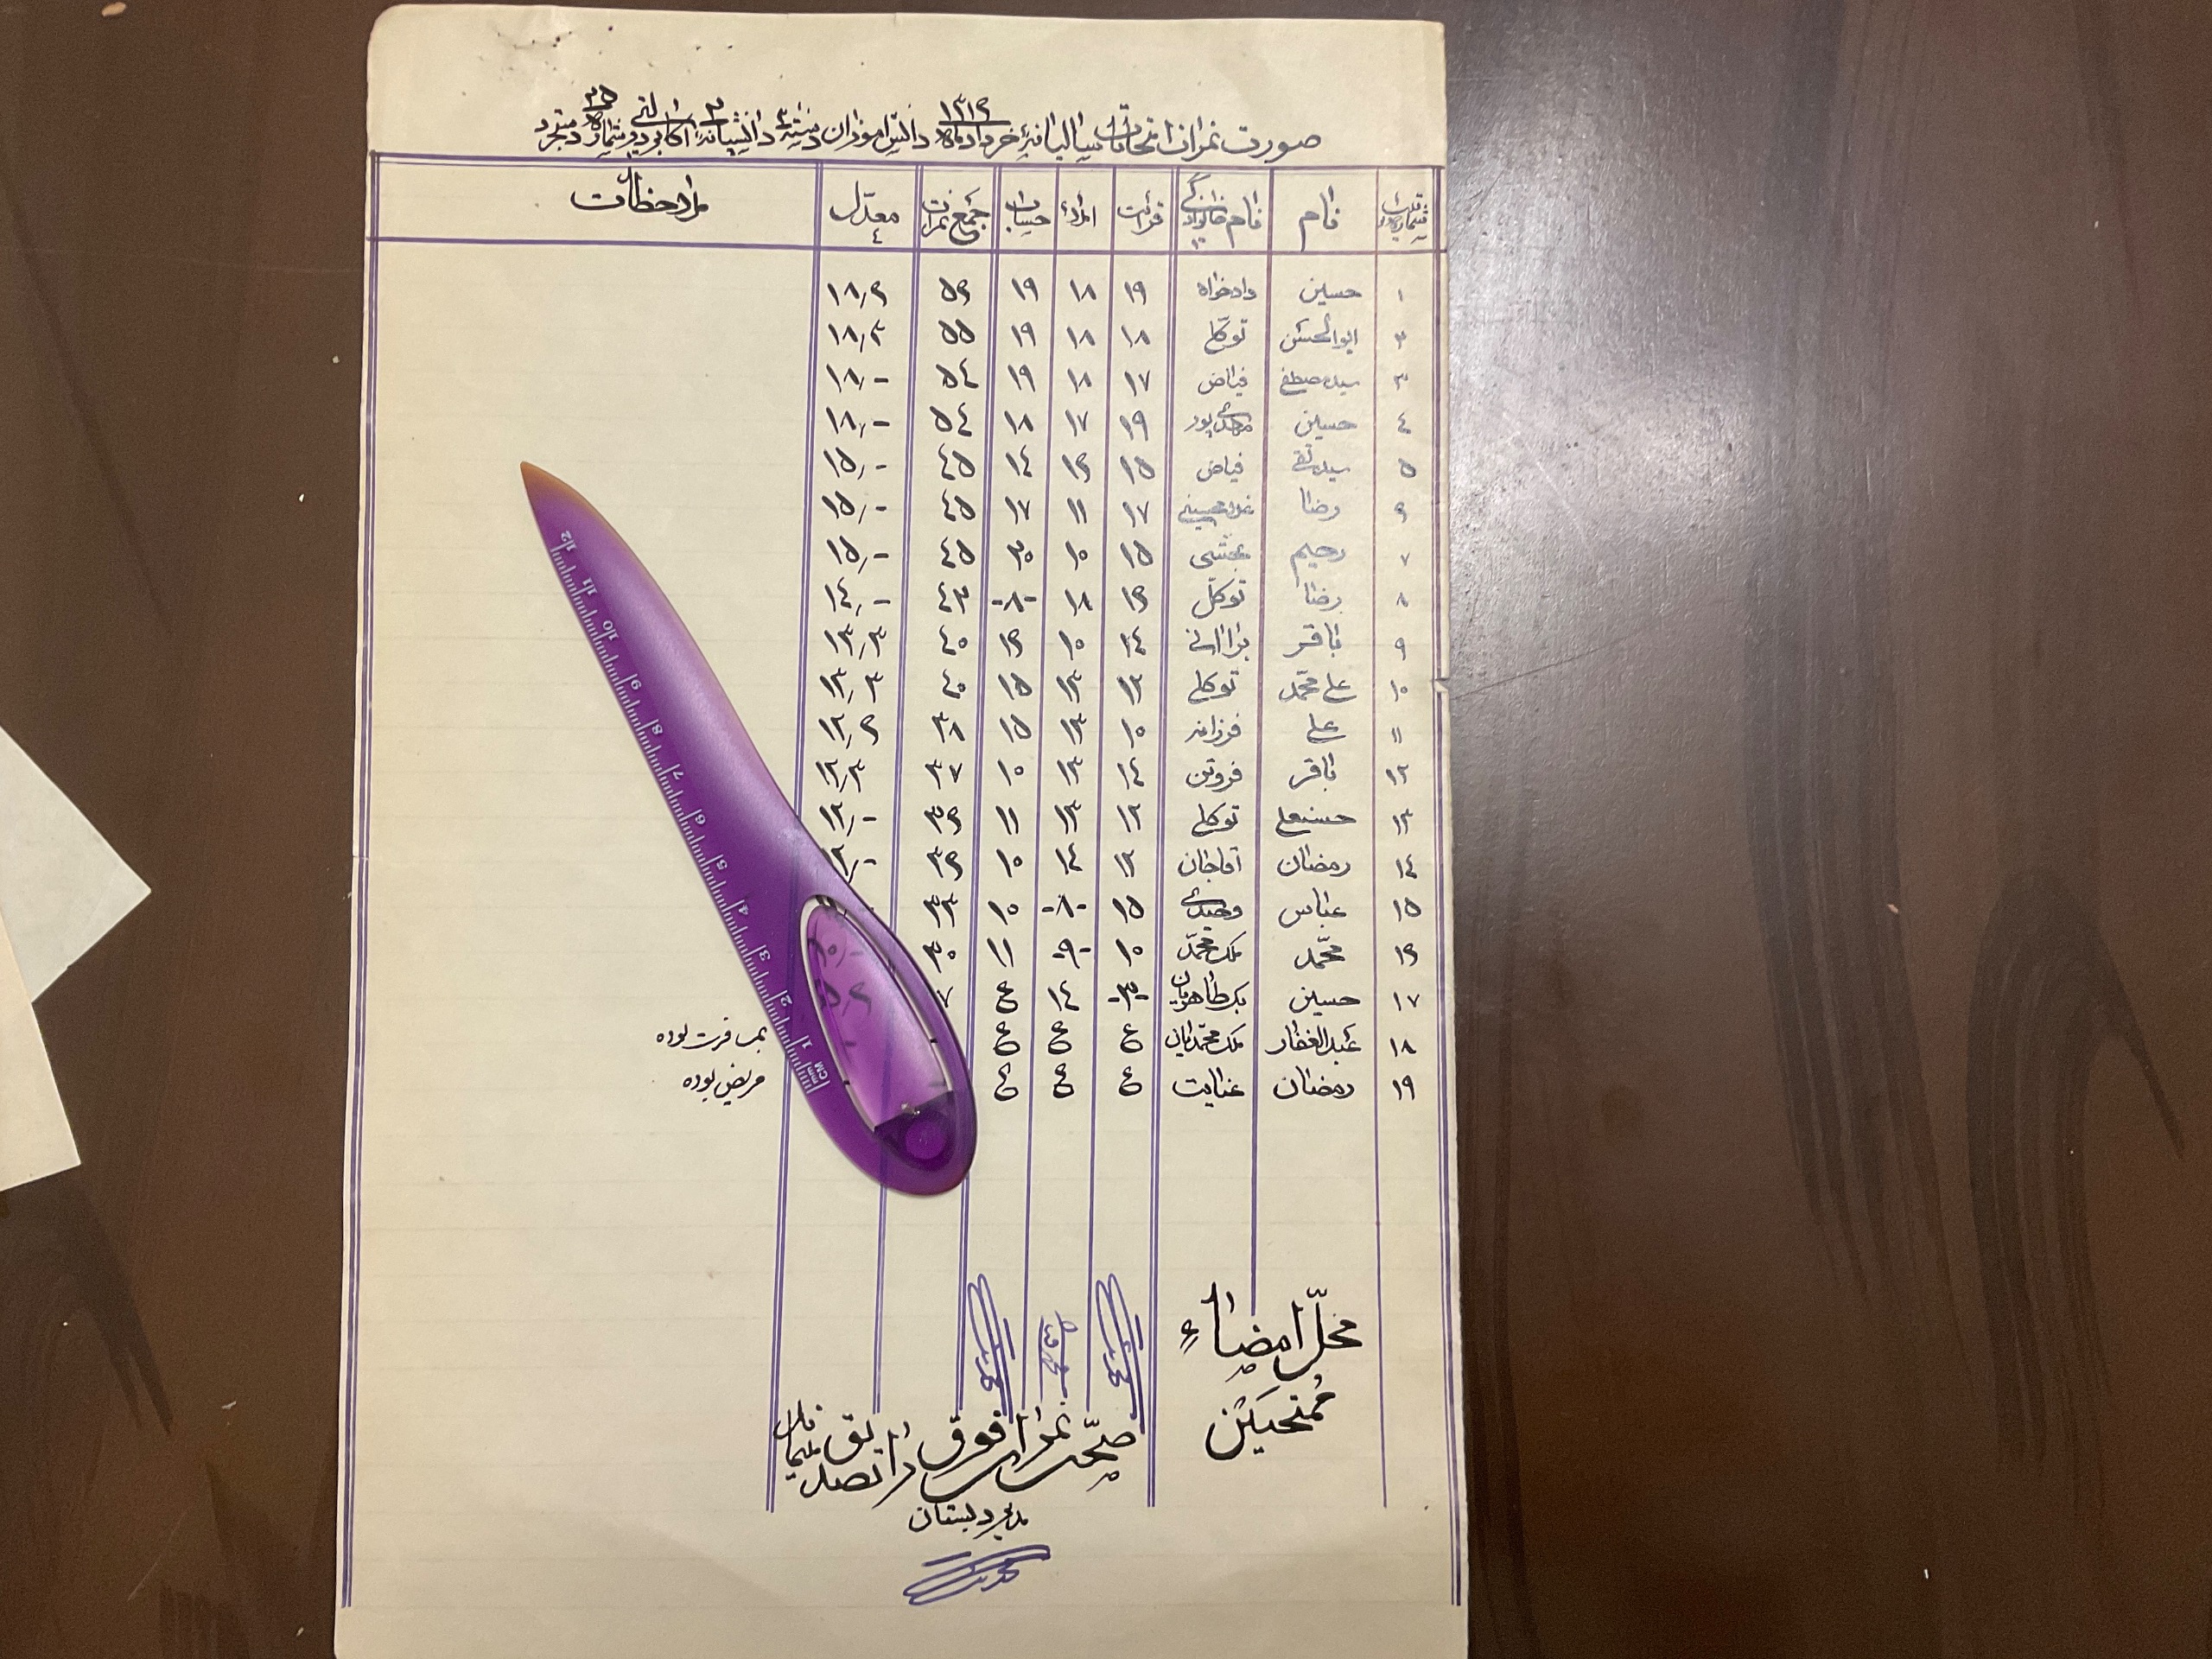 صورت نمرات امتحانات سالیانهٔ خرداد ماه ۱۳۱۶ دانش آموزان دستهٔ ۳ دانشپایهٔ ۲ اکابر دولتی شماره ۳۵ دستجرد
شماره نام نام خانوادگی قرائت املاء حساب جمع نمرات معدّل ملاحظات
۱ حسین دادخواه ۱۹ ۱۸ ۱۹ ۵۶ ۱۸٫۶
۲ ابوالحسن توکلی ۱۸ ۱۸ ۱۹ ۵۵ ۱۸٫۳
۳ سیدمصطفی فیاض ۱۷ ۱۸ ۱۹ ۵۴ ۱۸٫-
۴ حسین مهدی پور ۱۹ ۱۷ ۱۸ ۵۴ ۱۸٫-
۵ سیدتقی فیاض ۱۵ ۱۶ ۱۴ ۴۵ ۱۵٫-
۶ رضا غلامحسینی ۱۷ ۱۱ ۱۷ ۴۵ ۱۵٫-
۷ رحیم بخشی ۱۵ ۱۰ ۲۰ ۴۵ ۱۵٫-
۸ رضا توکلی ۱۶ ۱۸ -۸- ۴۲ ۱۴٫-
۹ باقر ۱۴ ۱۰ ۱۶ ۴۰ ۱۳٫۳
۱۰ علی محمد توکلی ۱۲ ۱۳ ۱۵ ۴۰ ۱۳٫۳
۱۱ علی فرزانه ۱۰ ۱۳ ۱۵ ۳۸ ۱۲٫۶
۱۲ باقر فروتن ۱۴ ۱۳ ۱۰ ۳۷ ۱۲٫۳
۱۳ حسنعلی توکلی ۱۲ ۱۳ ۱۱ ۳۶ ۱۲٫-
۱۴ رمضان آقاجان ۱۲ ۱۴ ۱۰ ۳۶ ۱۲٫-
۱۵ عباس وحیدی ۱۵ -۸- ۱۰ ۳۳
۱۶ محمّد ملک محمّد ۱۰ -۹- ۱۱ ۳۰ ۱۰٫-
۱۷ حسین بک طاهریان -۳- ۱۴ غ ۷ ۵٫۶
۱۸ عبدالغفار ملک محمّدیان غ غ غ بمسافرت بوده
۱۹ رمضان عنایت غ غ غ مریض بوده
محلّ امضاء
ممتحنین
صحّت نمرات فوق را تصدیق مینماید
مدیر دبستان